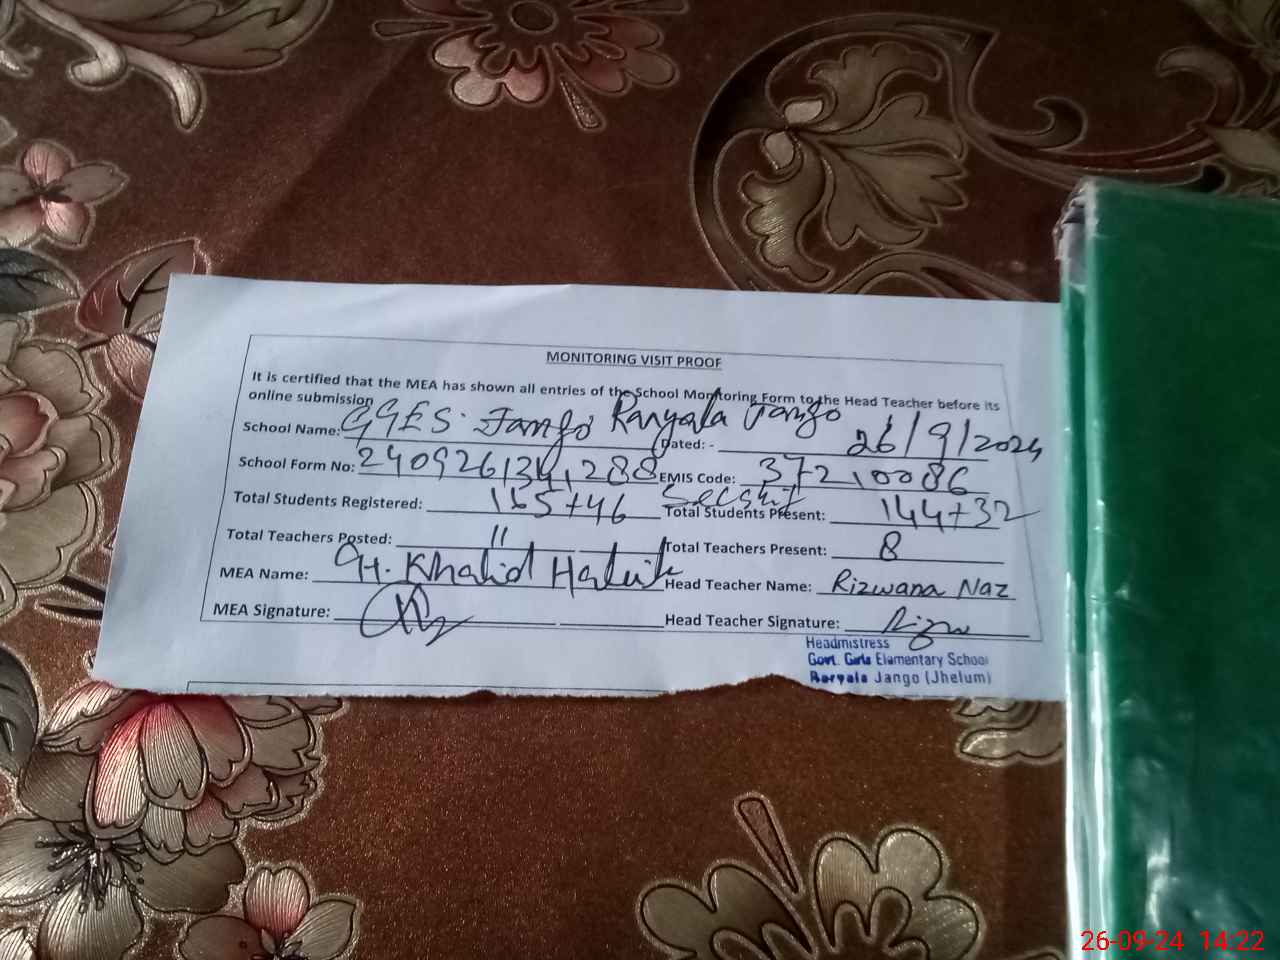 MONITORING VISIT PROOF
It is certified that the MEA has shown all entries of the School Monitoring Form to the Head Teacher before its
online submission
School Name: GGES. Jango Raryala Jango Dated: - 26/9/2024
School Form No: EMIS Code: 37210086
Total Students Registered: 165+46 Sec Shift Total Students Present: 144+32
Total Teachers Posted: 11 Total Teachers Present: 8
MEA Name: Khalid Head Teacher Name: Rizwana Naz
MEA Signature: Head Teacher Signature:
Headmistress
Govt. Girls Elamentary School
Raryala Jango (Jhelum)
26-09-24 14:22